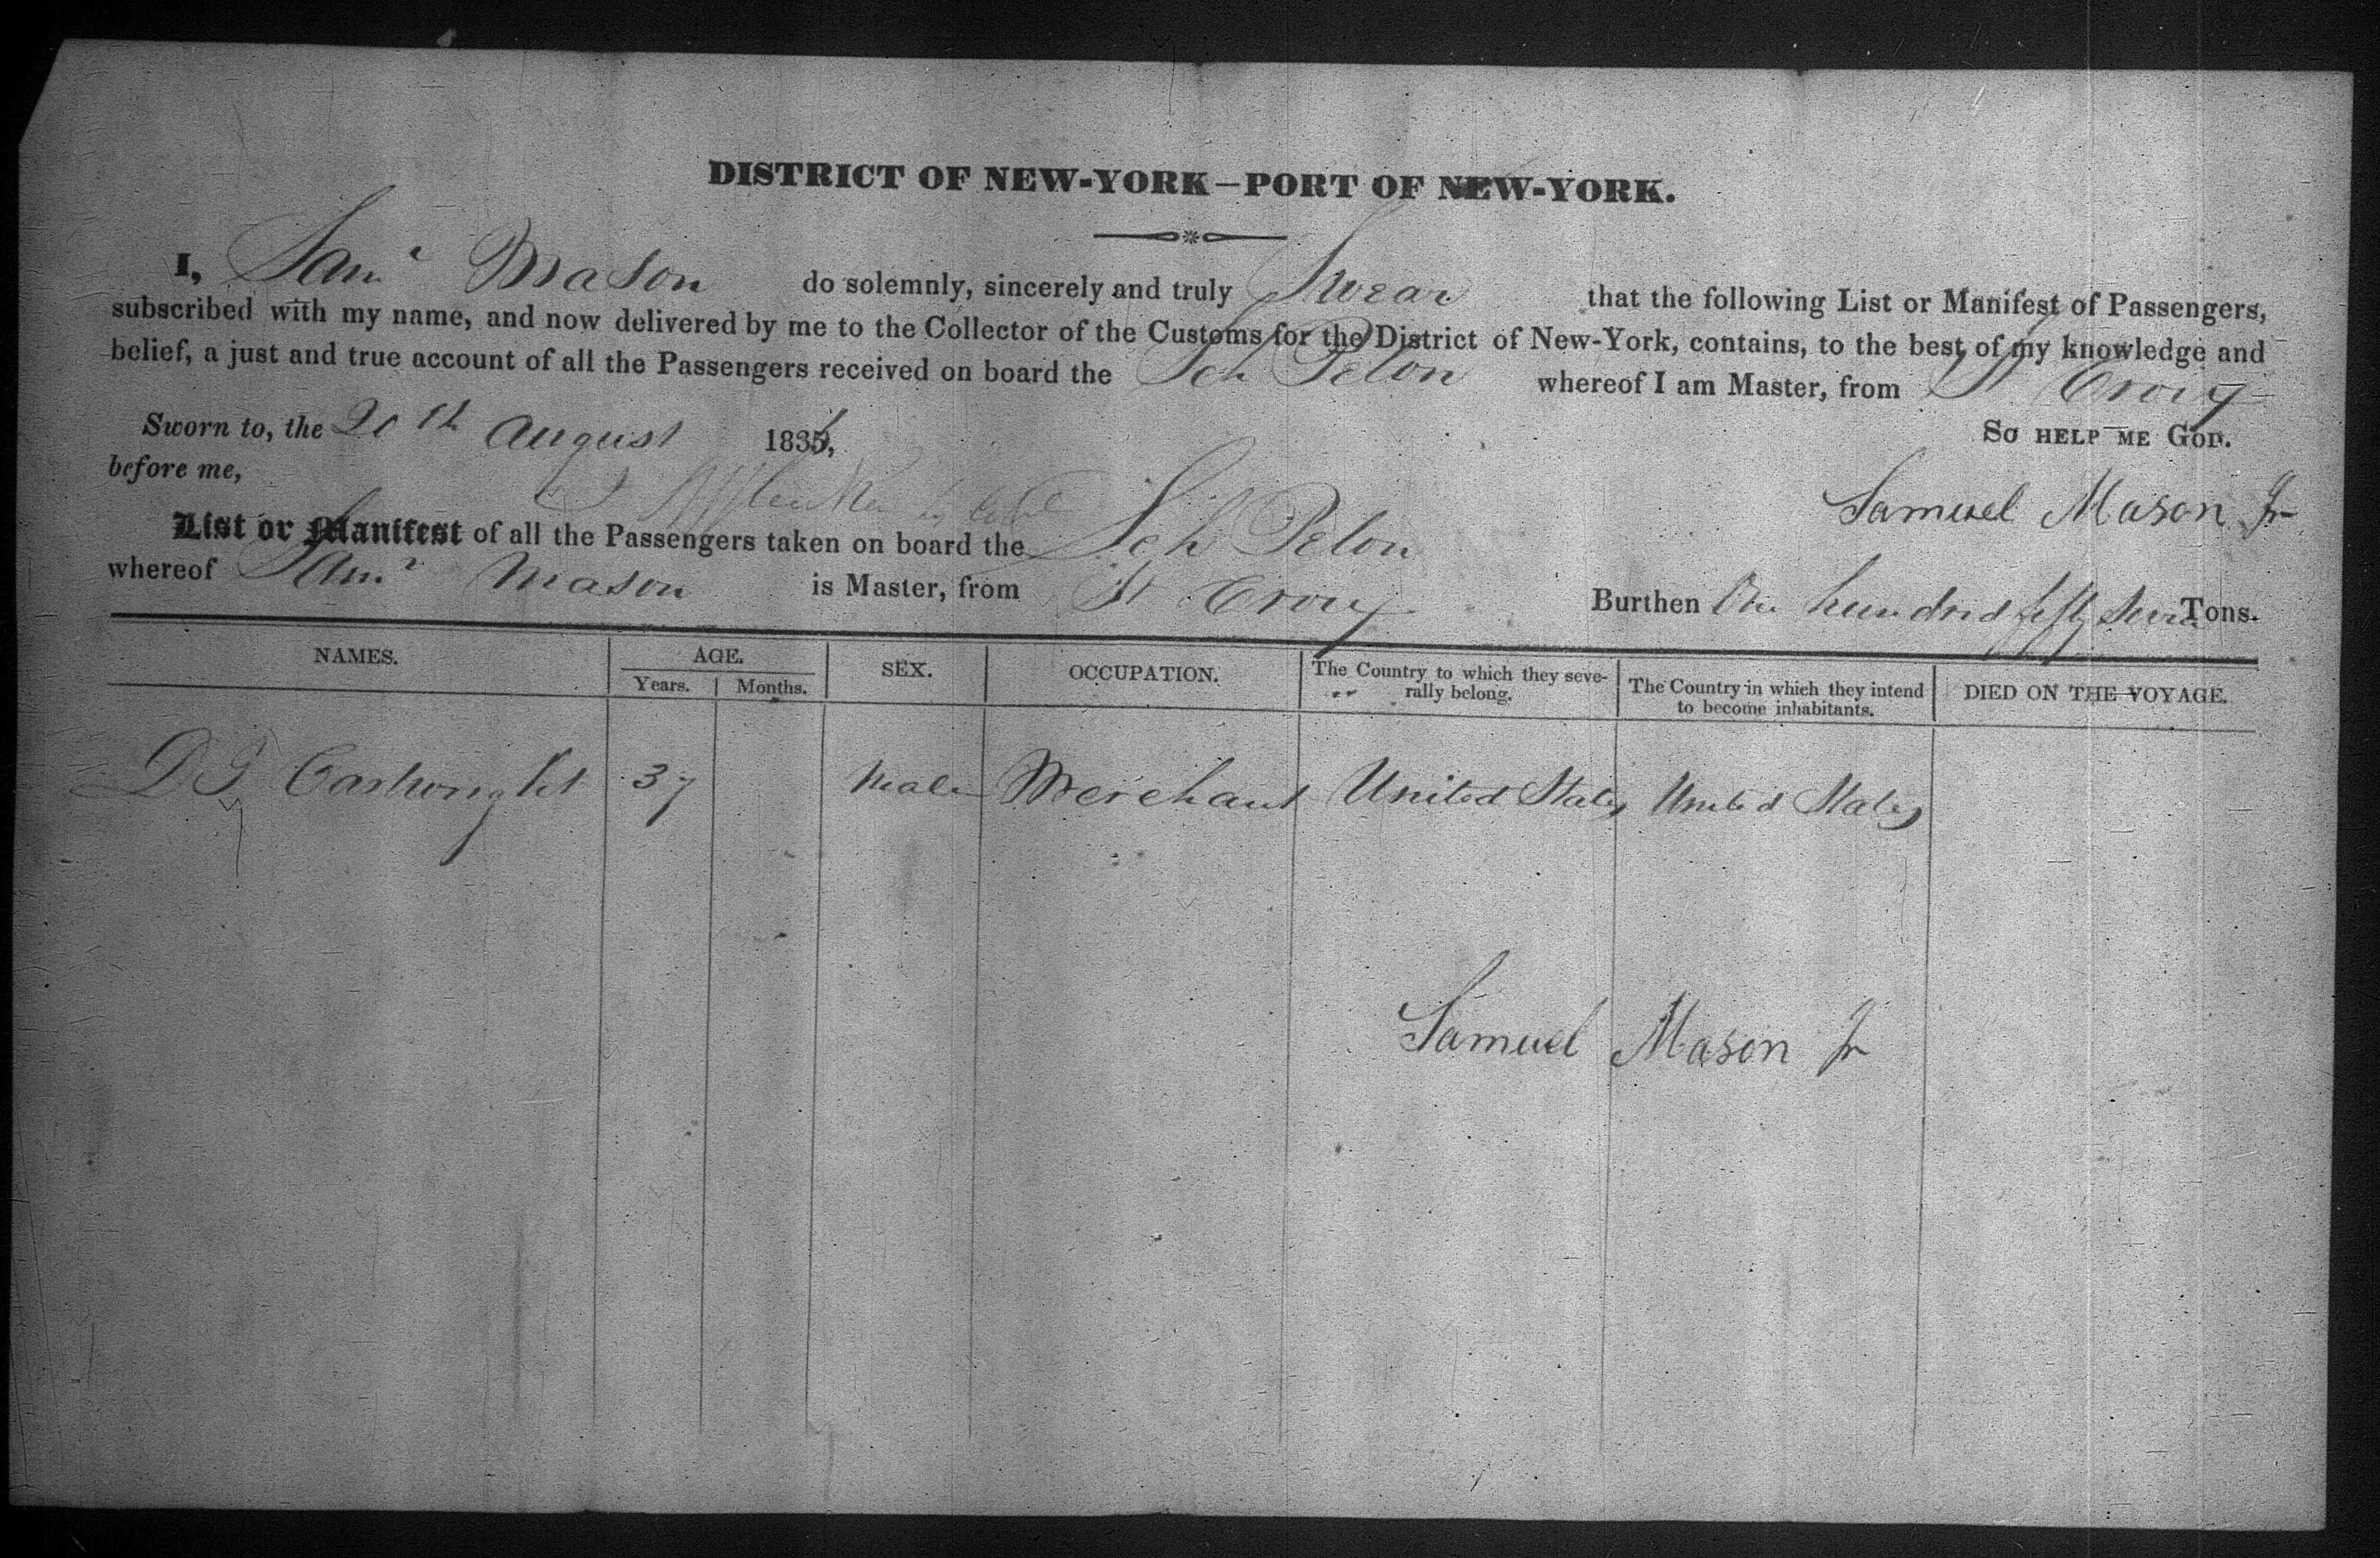 DISTRICT OF NEW-YORK—PORT OF NEW-YORK.
I, Saml Mason do solemnly, sincerely and truly Swear that the following List or Manifest of Passengers,
subscribed with my name, and now delivered by me to the Collector of the Customs for the District of New-York, contains, to the best of my knowledge and
belief, a just and true account of all the Passengers received on board the Sch Pelon whereof I am Master, from St Croix
Sworn to, the 20th August 183 So HELP ME GOD.
before me,
Samuel Mason Jr
List or Manifest of all the Passengers taken on board the Sch Pelon
whereof Saml Mason is Master, from St Croix Burthen One hundred fifty Seven Tons.
NAMES. AGE. SEX. OCCUPATION. The Country to which they seve-rally belong. The Country in which they intend to become inhabitants. DIED ON THE VOYAGE.
Years. Months.
D Cartwright 37 Male Merchant United States United States
Samuel Mason Jr